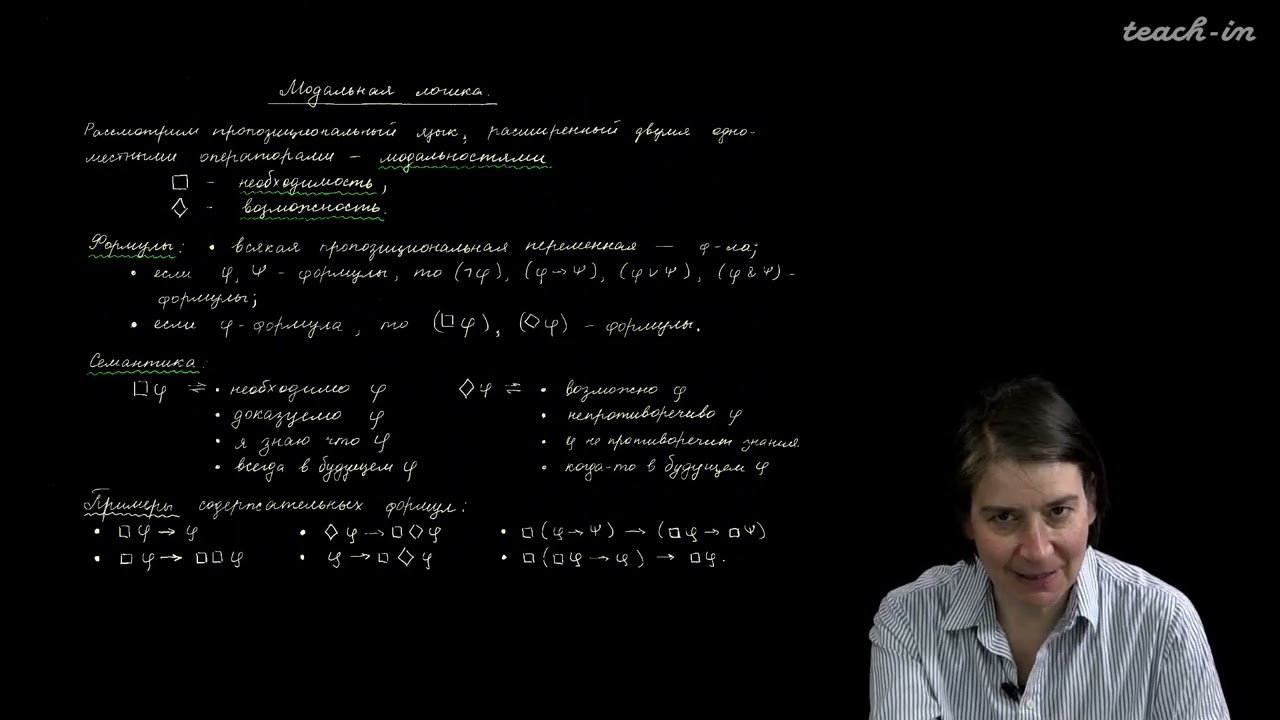 teach-in
Модальная логика.
Рассмотрим пропозициональный язык, расширенный двумя одно-
местными операторами – модальностями
□ – необходимость,
◇ – возможность.
Формулы: • всякая пропозициональная переменная — ф-ла;
• если φ, ψ – формулы, то (¬φ), (φ→ψ), (φ∨ψ), (φ&ψ) –
формулы;
• если φ-формула, то (□φ), (◇φ) – формулы.
Семантика:
□φ ⇌ • необходимо φ ◇φ ⇌ • возможно φ
• доказуемо φ • непротиворечиво φ
• я знаю что φ • φ не противоречит знания
• всегда в будущем φ • когда-то в будущем φ
Примеры содержательных формул:
• □φ→φ • ◇φ→□◇φ • □(φ→ψ)→(□φ→□ψ)
• □φ→□□φ • φ→□◇φ • □(□φ→φ)→□φ.